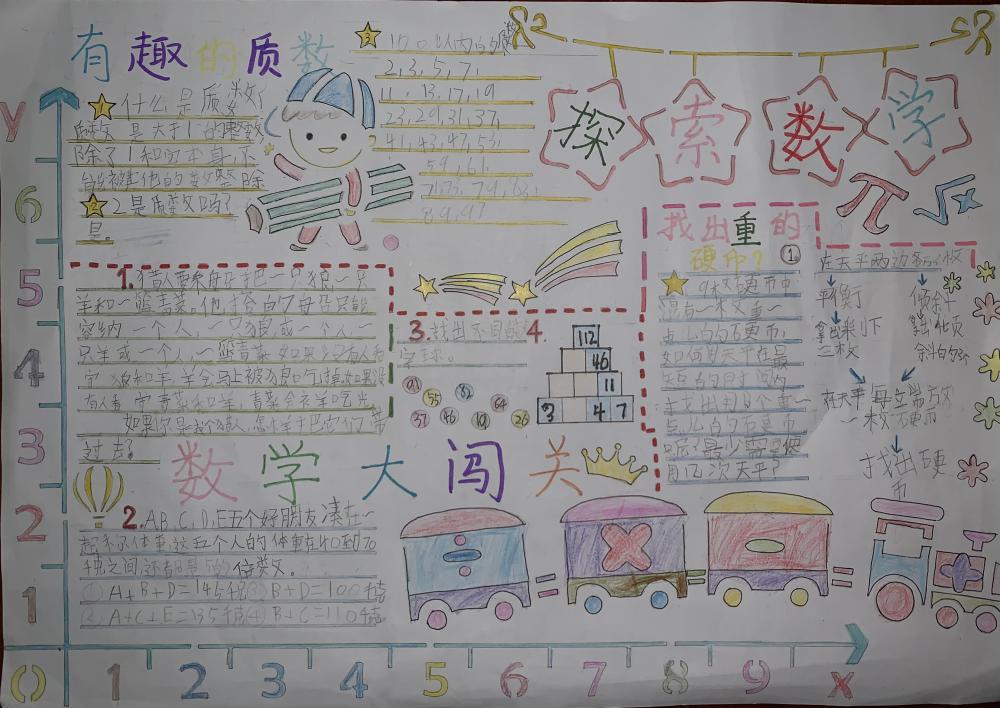 有趣的质数
1什么是质数?
质数是大于1的整数
除了1和它本身,不
能被其他的数整除
2 2是质数吗?
是。
3 100以内的质数
2,3,5,7,
11,13,17,19
23,29,31,37,
41,43,47,53,
59,61,
71,73,79,83,
89,97
探索数学
π √x
1.猎人要乘船把一只狼,一只
羊和一篮青菜。他
容纳一个人,一只狼或一个人,一
只羊或一个人,一篮青菜,如果
守,狼和羊,羊会马上被狼吃掉,如果没
有人看守青菜和羊,青菜会被羊吃光
如果你是猎人,怎样把它们带
过去?
3.找出不同的数
字球。
91 55 82 64
37 46 19 26
4.
112
46
11
3 4 7
找出重的
硬币?
1
9枚硬币中
混有一枚重一
点儿的的硬币,
如何用天平在最
短的时间内
找出那个重一
点儿的的硬币
呢?最少需要使
用几次天平?
左天平两边各放3枚
平衡 倾斜
拿出剩下 拿出倾
三枚 斜的3个
在天平每立端放
一枚硬币
找出硬
币
数学大闯关
2.A,B,C,D,E五个好朋友凑在一
起称体重,这五个人的体重在40到70
千克之间,还都是5的倍数。
① A+B+D=145千克 ③ B+D=100千克
② A+C+E=135千克 ④ B+C=110千克
÷ = × = − = +
y
6
5
4
3
2
1
0 1 2 3 4 5 6 7 8 9 x